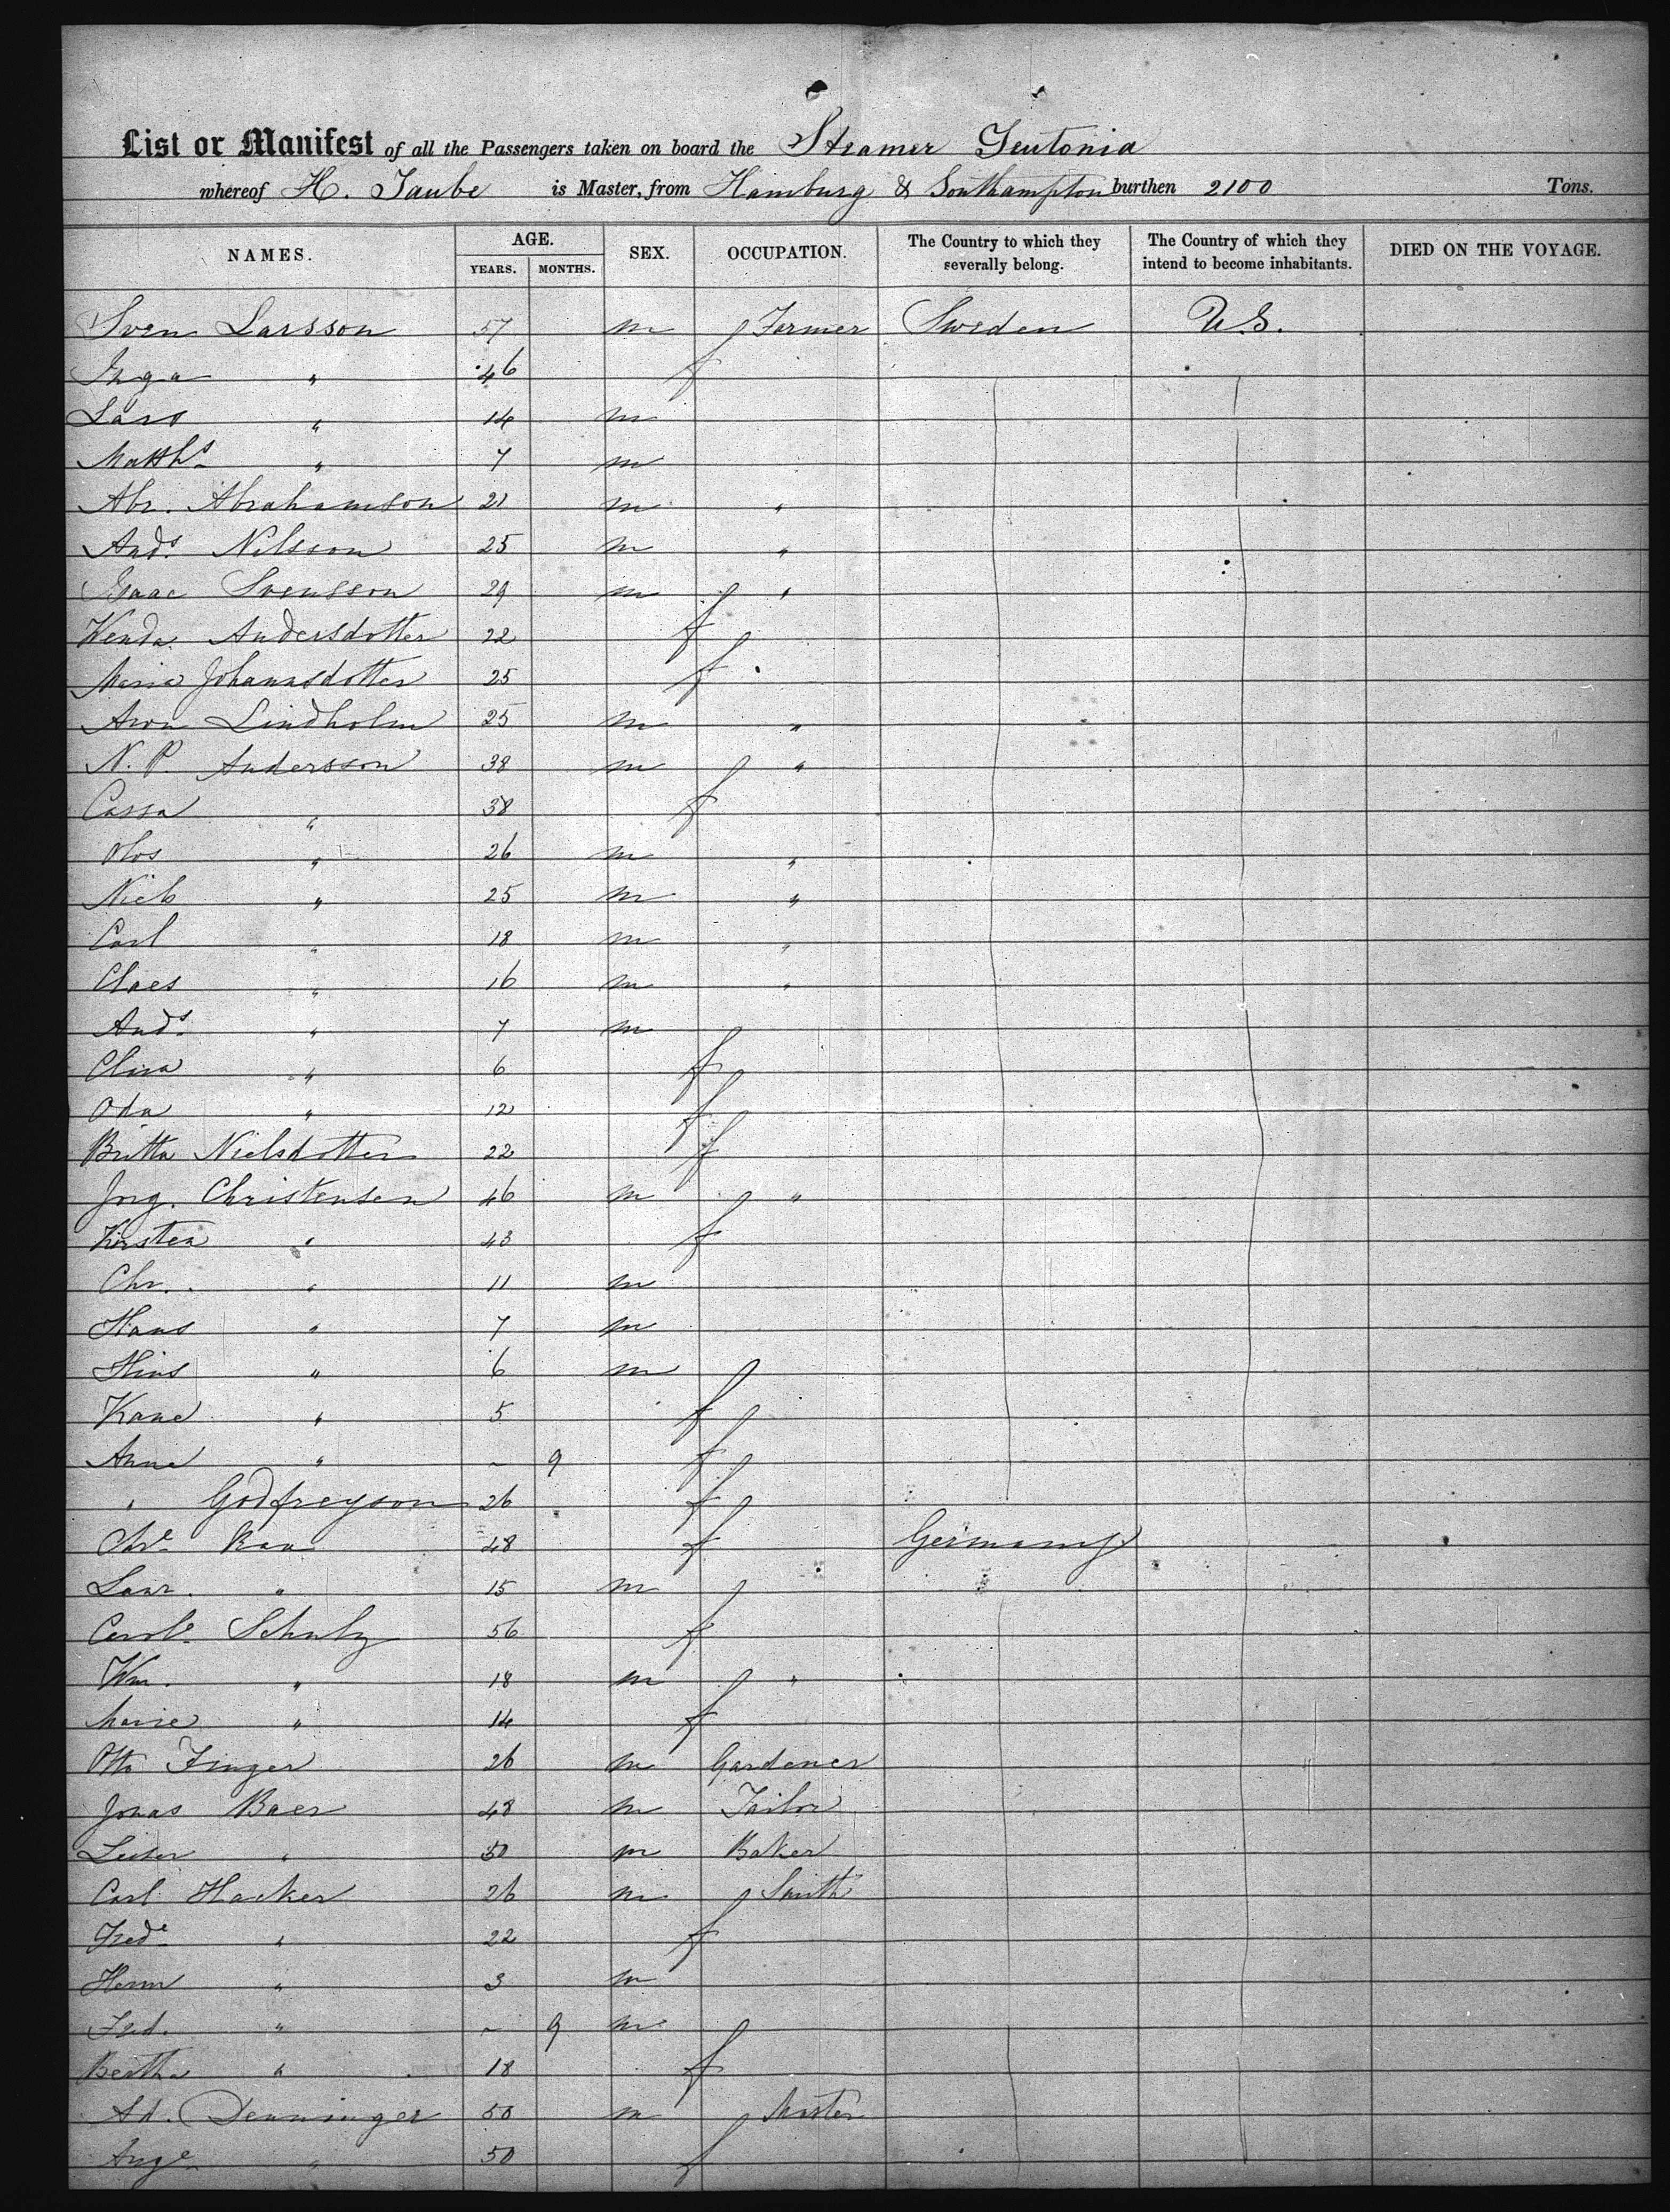 List or Manifest of all the Passengers taken on board the Steamer Teutonia
whereof H. Taube is Master, from Hamburg & Southampton burthen 2100 Tons.
NAMES. AGE. YEARS. MONTHS. SEX. OCCUPATION. The Country to which they severally belong. The Country of which they intend to become inhabitants. DIED ON THE VOYAGE.
Sven Larsson 57 m Farmer Sweden U.S.
Inga " 46 f
Lars " 14 m
Matths " 7 m
Abr. Abrahamson 21 m "
Ands Nilsson 25 m "
Isaac Svensson 29 m "
Wenda Andersdotter 22 f
Maria Johannsdotter 25 f
Aron Lindholm 25 m "
N. P. Andersson 38 m "
Cassa " 38 f
Olos " 26 m "
Niels " 25 m "
Carl " 18 m "
Claes " 16 m "
Ands " 7 m
Clisa " 6 f
Oda " 12 f
Britta Nielsdotter 22 f
Jorg. Christensen 46 m "
Kirsten " 43 f
Chr. " 11 m
Hans " 7 m
Hins " 6 m
Kane " 5 f
Anne " - 9 f
" Godfreyson 26 f
Chre Rau 48 f Germany
Laur. " 15 m
Carole Schulz 56 f
Wm. " 18 m "
Marie " 14 f
Otto Finger 26 m Gardener
Jonas Baer 48 m Tailor
" 50 m Baker
Carl Hacker 26 m Smith
Frede " 22 f
Herm " 3 m
Fred. " - 9 m
Bertha " 18 f
Ad. Denninger 50 m
Auge " 50 f